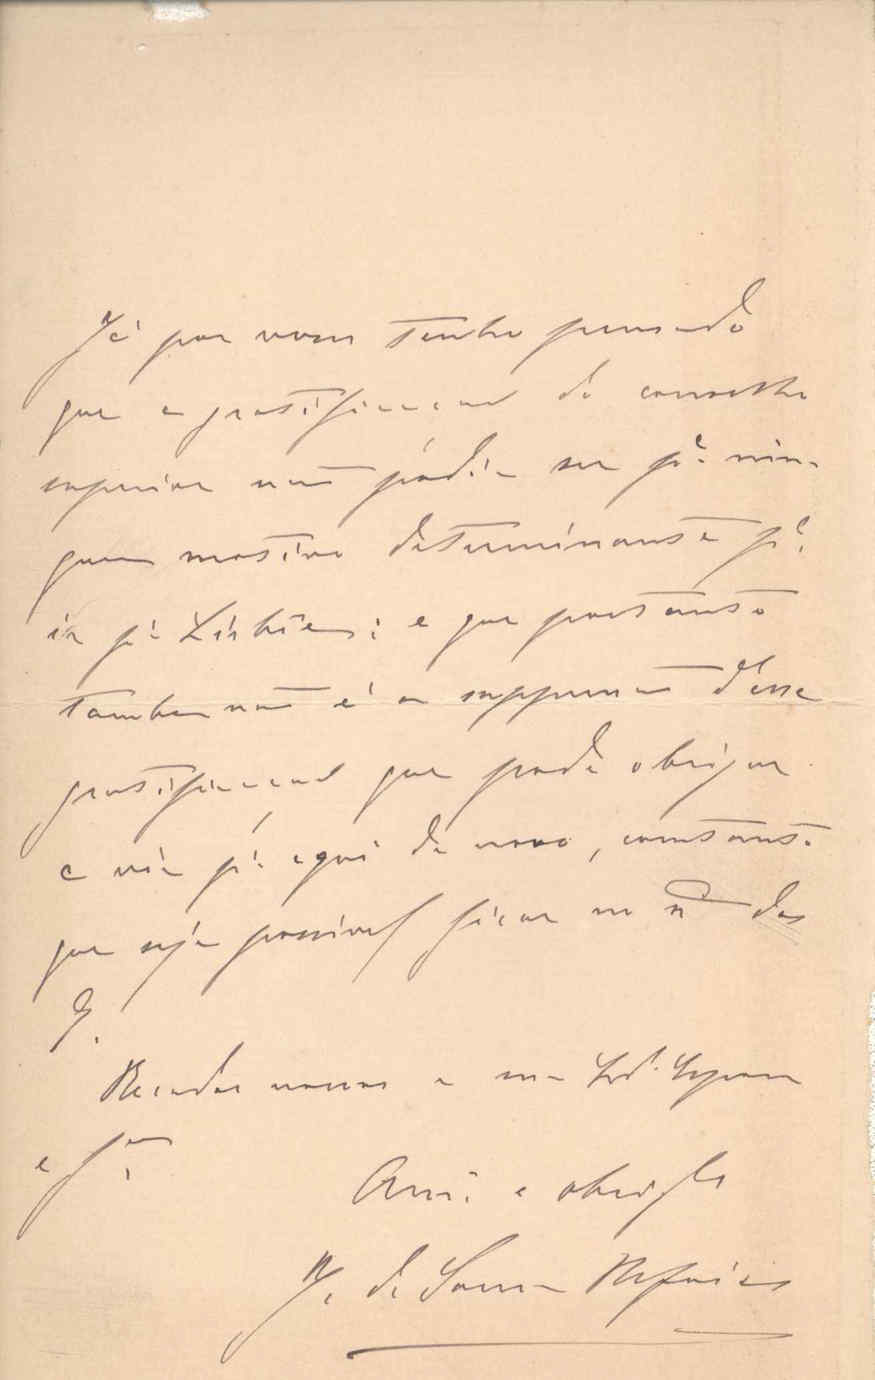 Já por vezes tenho pensado
que a gratificacao do conselho
superior não pódia ser pª nin-
guem motivo determinante pª
ir pª Lisbôa; e que portanto
tambem não é a suppressão d'essa
gratificacao que pode obrigar
a vir pª aqui de novo, comtanto
que seja possivel ficar no nº dos
9.
Recados nossos a sua Exª Esposa
e
Amº e obrigdo
J. de Souza Refoios